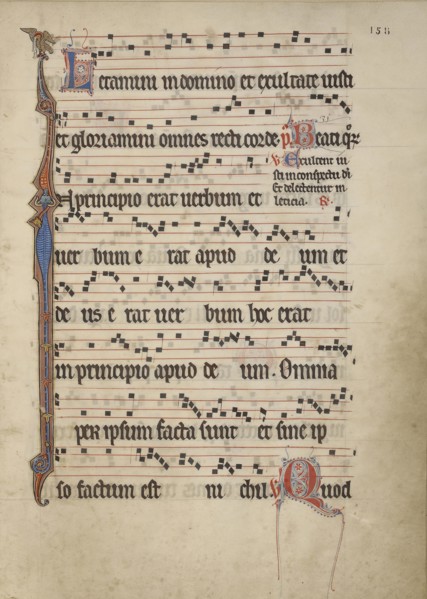 158
Letamini in domino et exultate iusti
et gloriamini omnes recti corde. ps. Beati qr
V Exultent iu
sti in conspectu di
Et delectentur in
leticia. R
In principio erat uerbum et
uer bum e rat apud de um et
de us e rat uer bum hoc erat
in principio apud de um. Omnia
per ipsum facta sunt et sine ip
so factum est ni chil V Quod